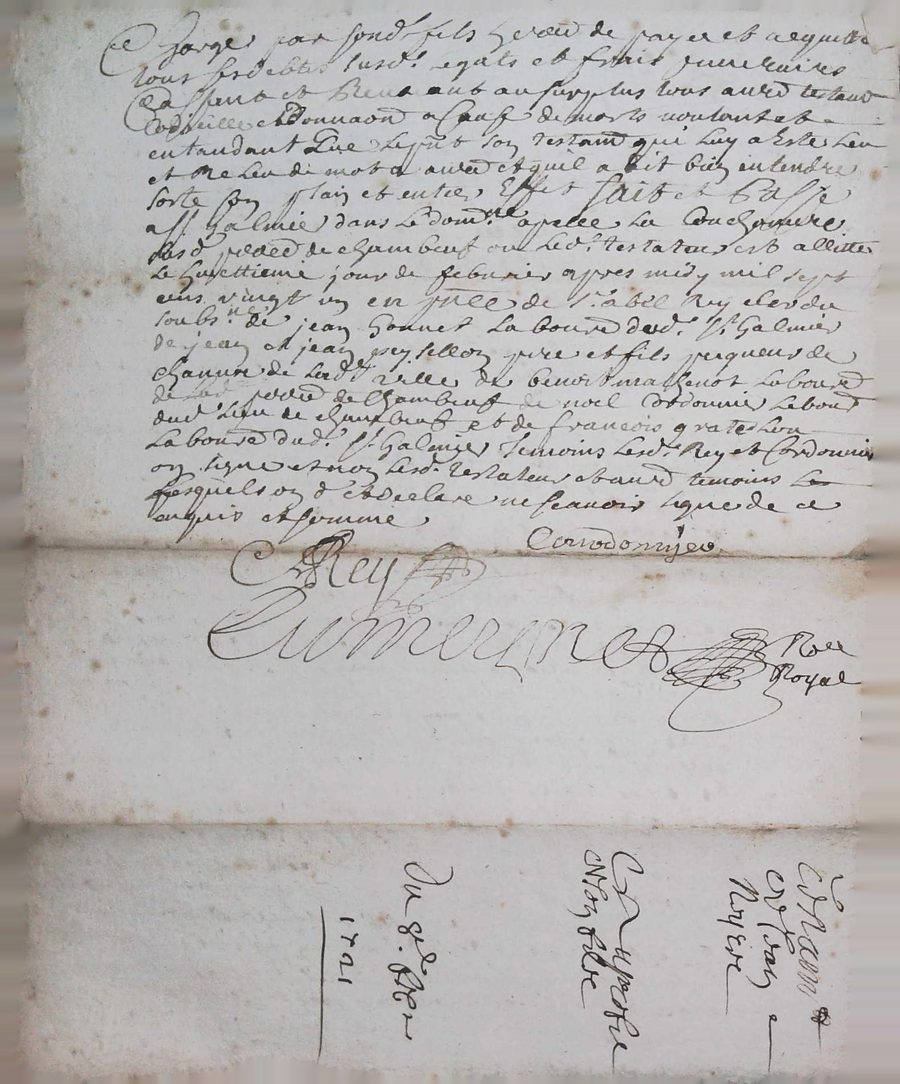 Charge par sond. fils hered de payer et acquitter
tous ses debtes susd. legats et frais funeraires
Cassant et Revocant au surplus tous autres testam
Codicille et donnaon a Cause de morts voulant et
entandant que le pnt son testam qui luy a este leu
et Releu de mot a autre et quil a dit bien entendre
sorte son plain et entier Effet fait et Passé
a St Galmier dans le dom.ne apellé La Couchonnere
susd. parred de chambeuf ou led. testateur est allitté
Le huittieme jour de febvrier apres midy mil sept
cens vingt un en pnce de Sr abel Rey clerc du
soubs.ne de jean Bonnet Laboure dud. St Galmier
de jean et jean peysellon pere et fils peigneurs de
chanvre de lad. ville de benoit mathenot Laboure
de lad. parred de Chambeuf de noel Cordonnier Laboure
dud. lieu de chambeuf et de francois grateloux
Laboure dud. St Galmier temoins lesd. Rey et Cordonnier
on signe et non lesd. testateur et autres temoins Les
Lesquels on d et declare ne scavoir signe de ce
enquis et sommé
Courdonnyer
Rey
Nore
Royal
Du 8e. fber
1721